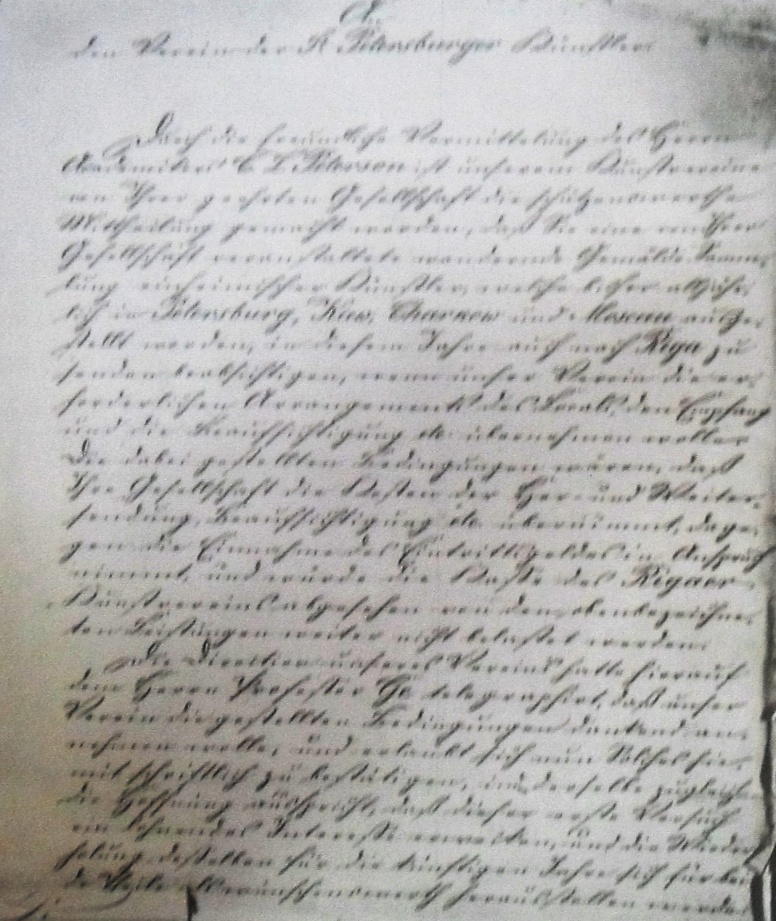 An
den Verein der St Petersburger Künstler.
Durch die freundliche Vermittelung des Herrn
Akademikers C. L. Peterson ist unserem Kunstvereine
von Ihrer geehrten Gesellschaft die schätzenswerthe
Mittheilung gemacht worden, daß Sie eine von Ihrer
Gesellschaft veranstaltete wandernde Gemälde Samm-
lung einheimischer Künstler, welche bisher alljähr-
lich in Petersburg, Kiew, Charkow und Moscau ausge-
stellt worden, in diesem Jahre auch nach Riga zu
senden beabsichtigen, wenn unser Verein die er-
forderlichen Arrangements des Locals, den Empfang
und die Beaufsichtigung etc. übernehmen wolle.
Die dabei gestellten Bedingungen wären, daß
Ihre Gesellschaft die Kosten der Her- und Weiter-
sendung, Beaufsichtigung etc. übernimmt, dage-
gen die Einnahme des Eintrittsgeldes in Anspruch
nimmt, und würde die Kasse des Rigaer
Kunstvereins abgesehen von den obenbezeichne-
ten Leistungen weiter nicht belastet werden.
Die Direction unseres Vereins hatte hierauf
dem Herrn Professor Ge telegraphirt, daß unser
Verein die gestellten Bedingungen dankend an-
nehmen wolle, und erlaubt sich nun Solches hier-
mit schriftlich zu bestätigen, indem derselbe zugleich
die Hoffnung ausspricht, daß dieser erste Versuch
ein lohnendes Interesse erwecken, und die Wieder-
holung desselben für die künftigen Jahre sich für bei-
de Theile als wünschenswerth herausstellen werde.